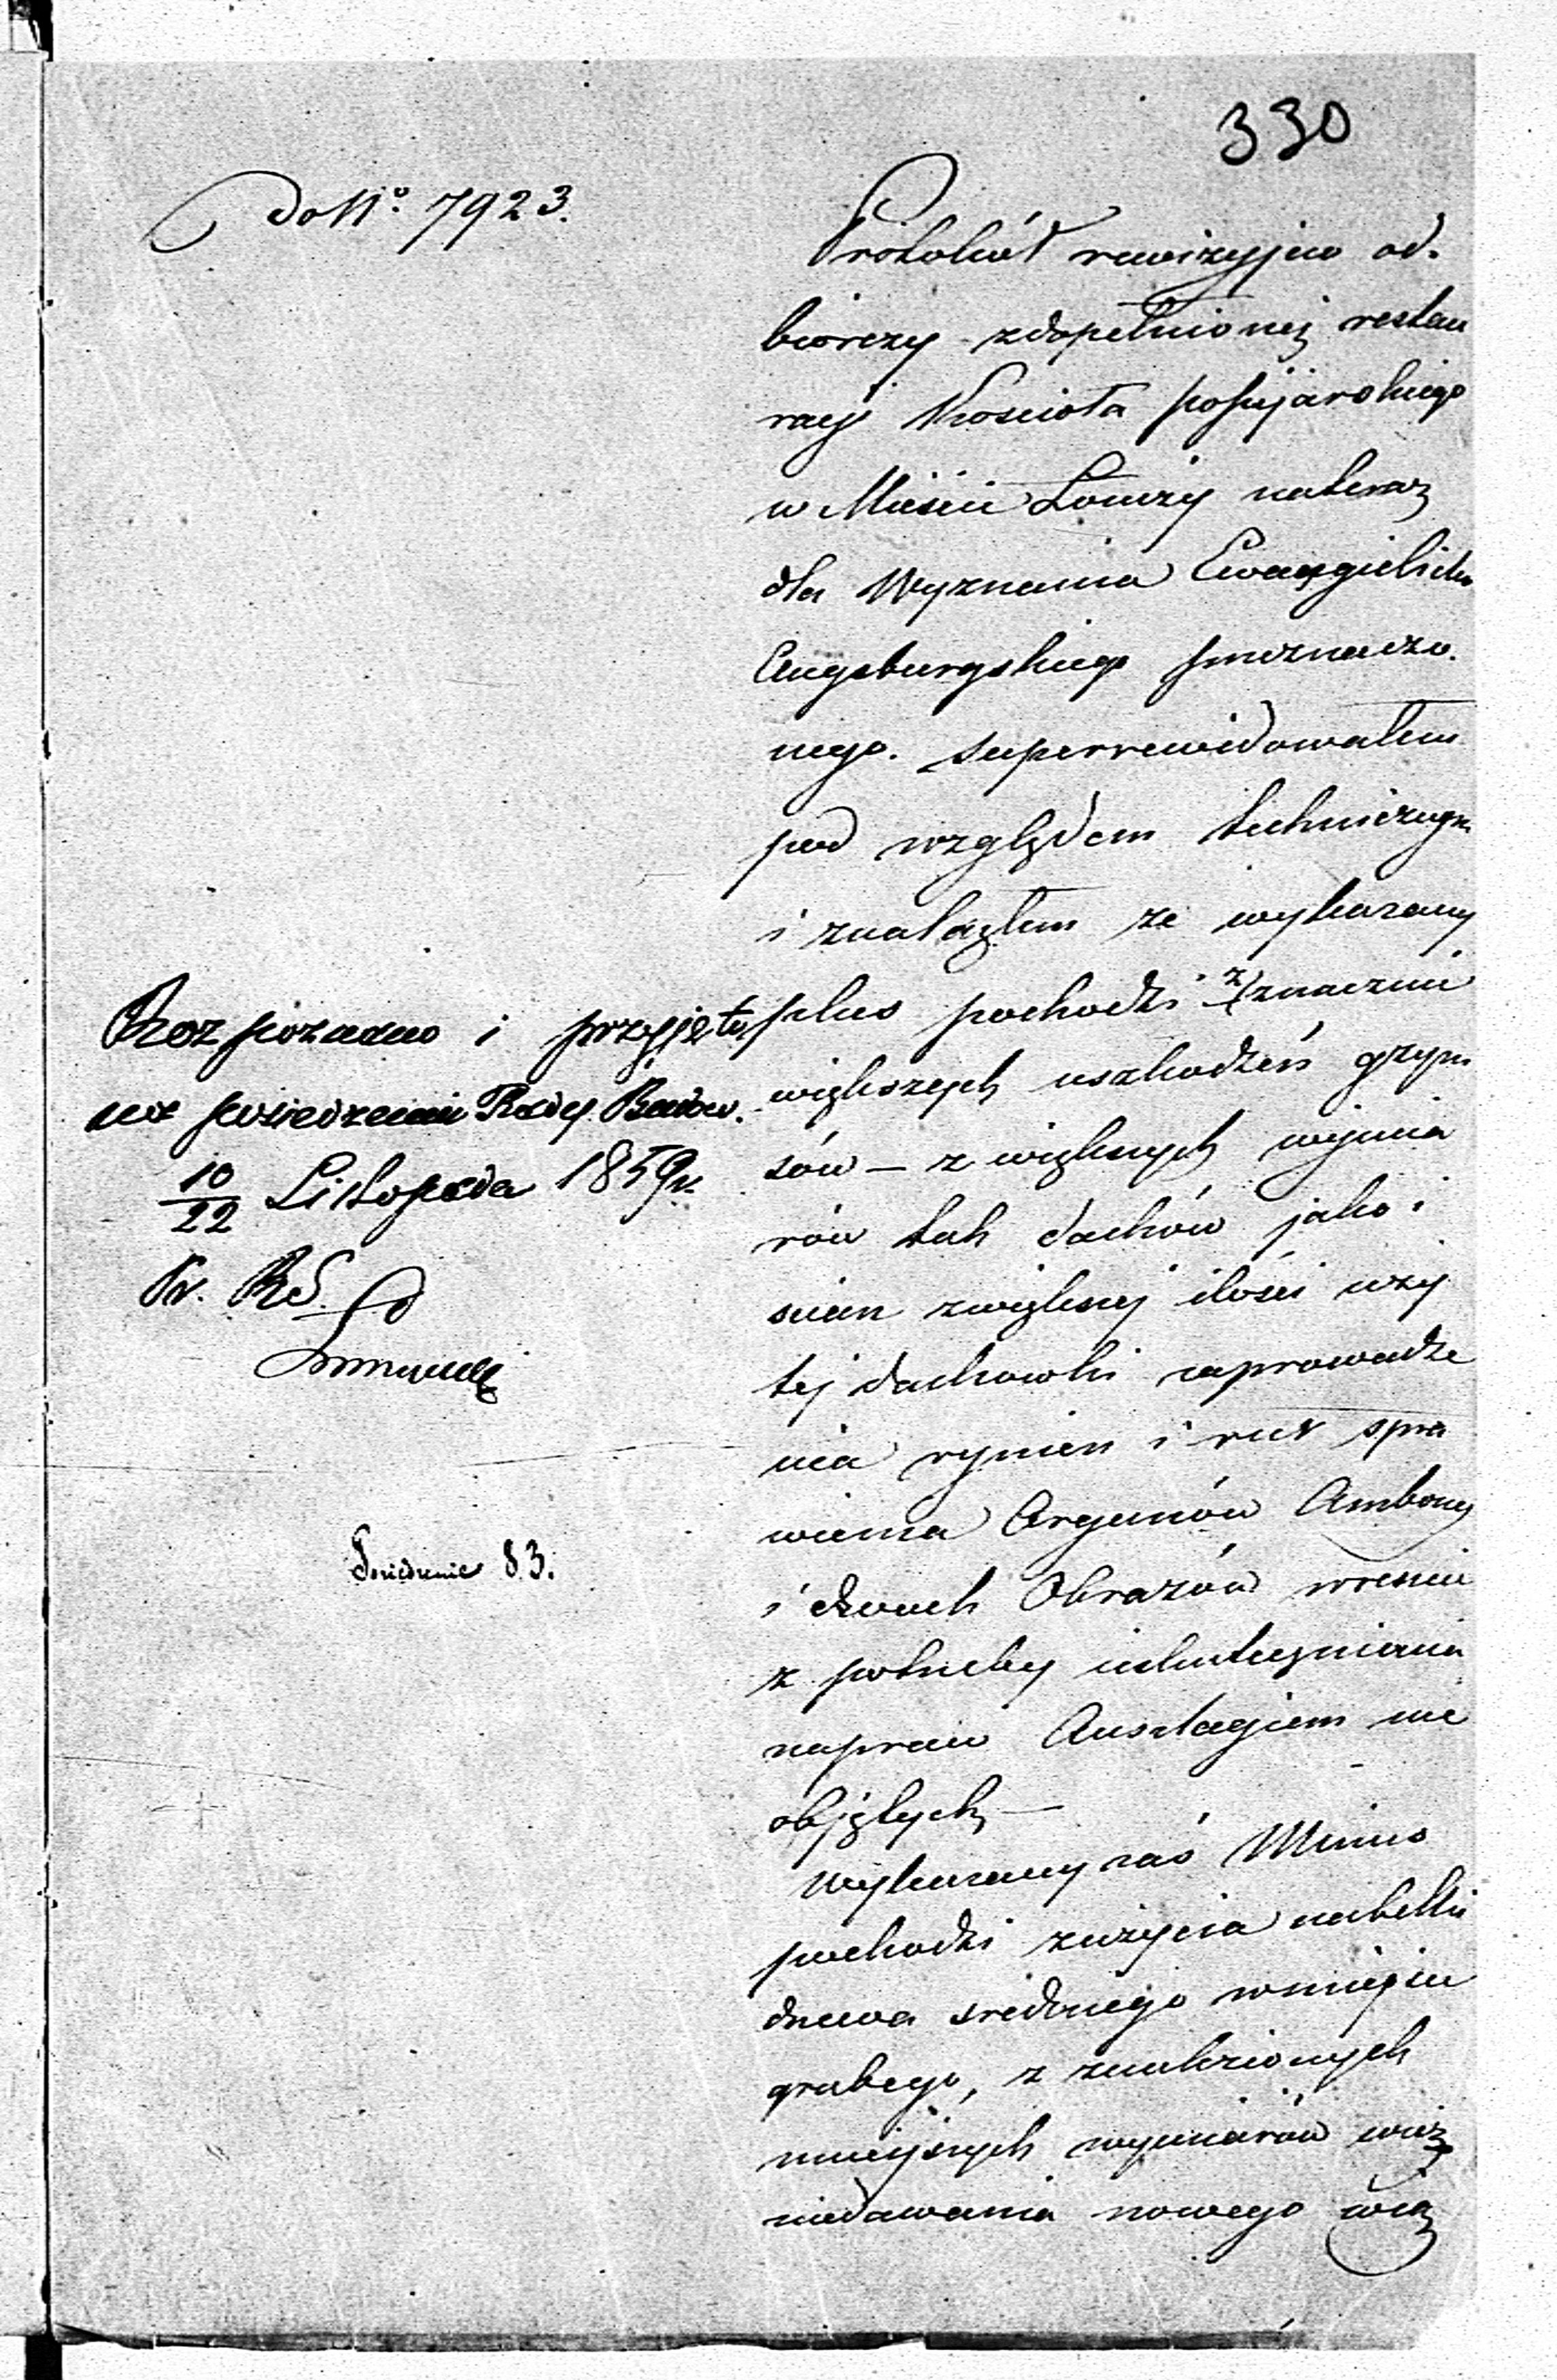 330
Do No. 7923.
Protokół rewizyjno od-
biorczy z dopełnionej restau
racyi Kościoła popijarskiego
w Mieście Łomży na teraz
dla Wyznania Ewangielicko
Augsburgskiego przeznaczo-
nego. superrewidowałem
pod względem technicznym
i znalazłem że wykazany
plus pochodzi z znacznie
większych uszkodzeń gzym
sów – z większych wymia
rów tak dachów jako i
scian z większej ilości uży
tej dachówki zaprowadze
nia rynien i rur spra
wienia Organów Ambony
i dwóch Obrazów wreście
z potrzeby uskutecznienia
napraw Anszlagiem nie
objętych –
Wykazany zaś Minus
pochodzi z użycia na belki
drzewa średniego w miejscu
grubego, z znalezionych
mniejszych wymiarów
niedawania nowego wią
Rozpoznano i przyjęto
na posiedzeniu Rady Budow.
10/22 Listopada 1859 r.
Posiedzenie 83.